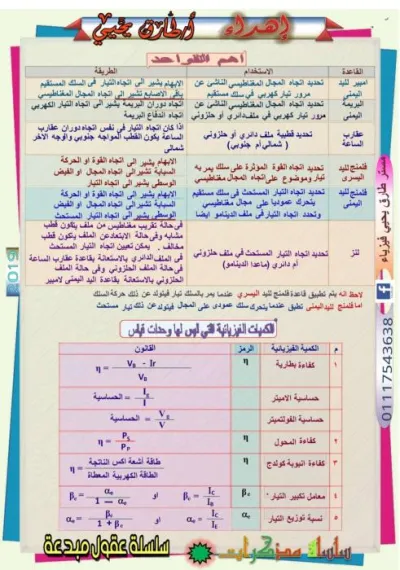 إهداء أ/طارق يحيي
اهم القواعد
القاعدة الاستخدام الطريقة
امبير لليد اليمني
تحديد اتجاه المجال المغناطيسي الناشئ عن
مرور تيار كهربي في سلك مستقيم
الابهام يشير الى اتجاه التيار فى السلك المستقيم
باقى الاصابع تشير الى اتجاه المجال المغناطيسي
البريمة اليمنى
تحديد اتجاه المجال المغناطيسي الناشئ عن
مرور تيار كهربي في ملف دائرى أو حلزوني
اتجاه دوران البريمة يشير الى اتجاه التيار الكهربي
اتجاه اندفاع البريمة
عقارب الساعة
تحديد قطبية ملف دائرى أو حلزوني
( شمالي أم جنوبي )
اذا كان اتجاه التيار في نفس اتجاه دوران عقارب
الساعة يكون القطب المواجه جنوبي والوجه الآخر
شمالي
فلمنج لليد اليسرى
تحديد اتجاه القوة المؤثرة على سلك يمر به
تيار وموضوع على اتجاه المجال مغناطيسي
الابهام يشير الى اتجاه القوة او الحركة
السبابة تشير الى اتجاه المجال او الفيض
الوسطى يشير الى اتجاه التيار
فلمنج لليد اليمنى
تحديد اتجاه التيار المستحث في سلك مستقيم
يتحرك عموديا على مجال مغناطيسي
وتحدد اتجاه التيار فى ملف الدينامو ايضا
الابهام يشير الى اتجاه القوة او الحركة
السبابة تشير الى اتجاه المجال او الفيض
الوسطى يشير الى اتجاه التيار المستحث
لنز
تحديد اتجاه التيار المستحث في ملف حلزوني
أم دائرى (ماعدا الدينامو)
فى حالة تقريب مغناطيس من ملف يتكون قطب
مشابه وفى حالة الابتعاد عن الملف يتكون قطب
مخالف . يمكن تعيين اتجاه التيار المستحث
فى الملف الدائرى بالاستعانة بقاعدة عقارب الساعة
فى حالة الملف الحلزوني وفى حالة الملف
الحلزوني بالاستعانة بقاعدة اليد اليمني لامبير
لاحظ انه يتم تطبيق قاعدة فلمنج لليد اليسري عندما يمر بالسلك تيار فيتولد عن ذلك حركة السلك
اما فلمنج لليد اليمنى تطبق عندما يتحرك سلك عمودى على المجال فيتولد عن ذلك تيار مستحث
الكميات الفيزيائية التي ليس لها وحدات قياس
م الكمية الفيزيائية الرمز القانون
١ كفاءة بطارية η η = (VB - Ir) / VB
حساسية الاميتر الحساسية = Ig / I
حساسية الفولتميتر الحساسية = Vg / V
٢ كفاءة المحول η η = PS / PP
٣ كفاءة انبوبة كولدج η η = طاقة أشعة اكس الناتجة / الطاقة الكهربية المعطاة
٤ معامل تكبير التيار βe βe = IC / IB او βe = αe / (1 − αe)
٥ نسبة توزيع التيار αe αe = IC / IE او αe = βe / (1 + βe)
سلسلة مذكرات سلسلة عقول مبدعة
مستر طارق يحيي فيزياء
01117543638
2019